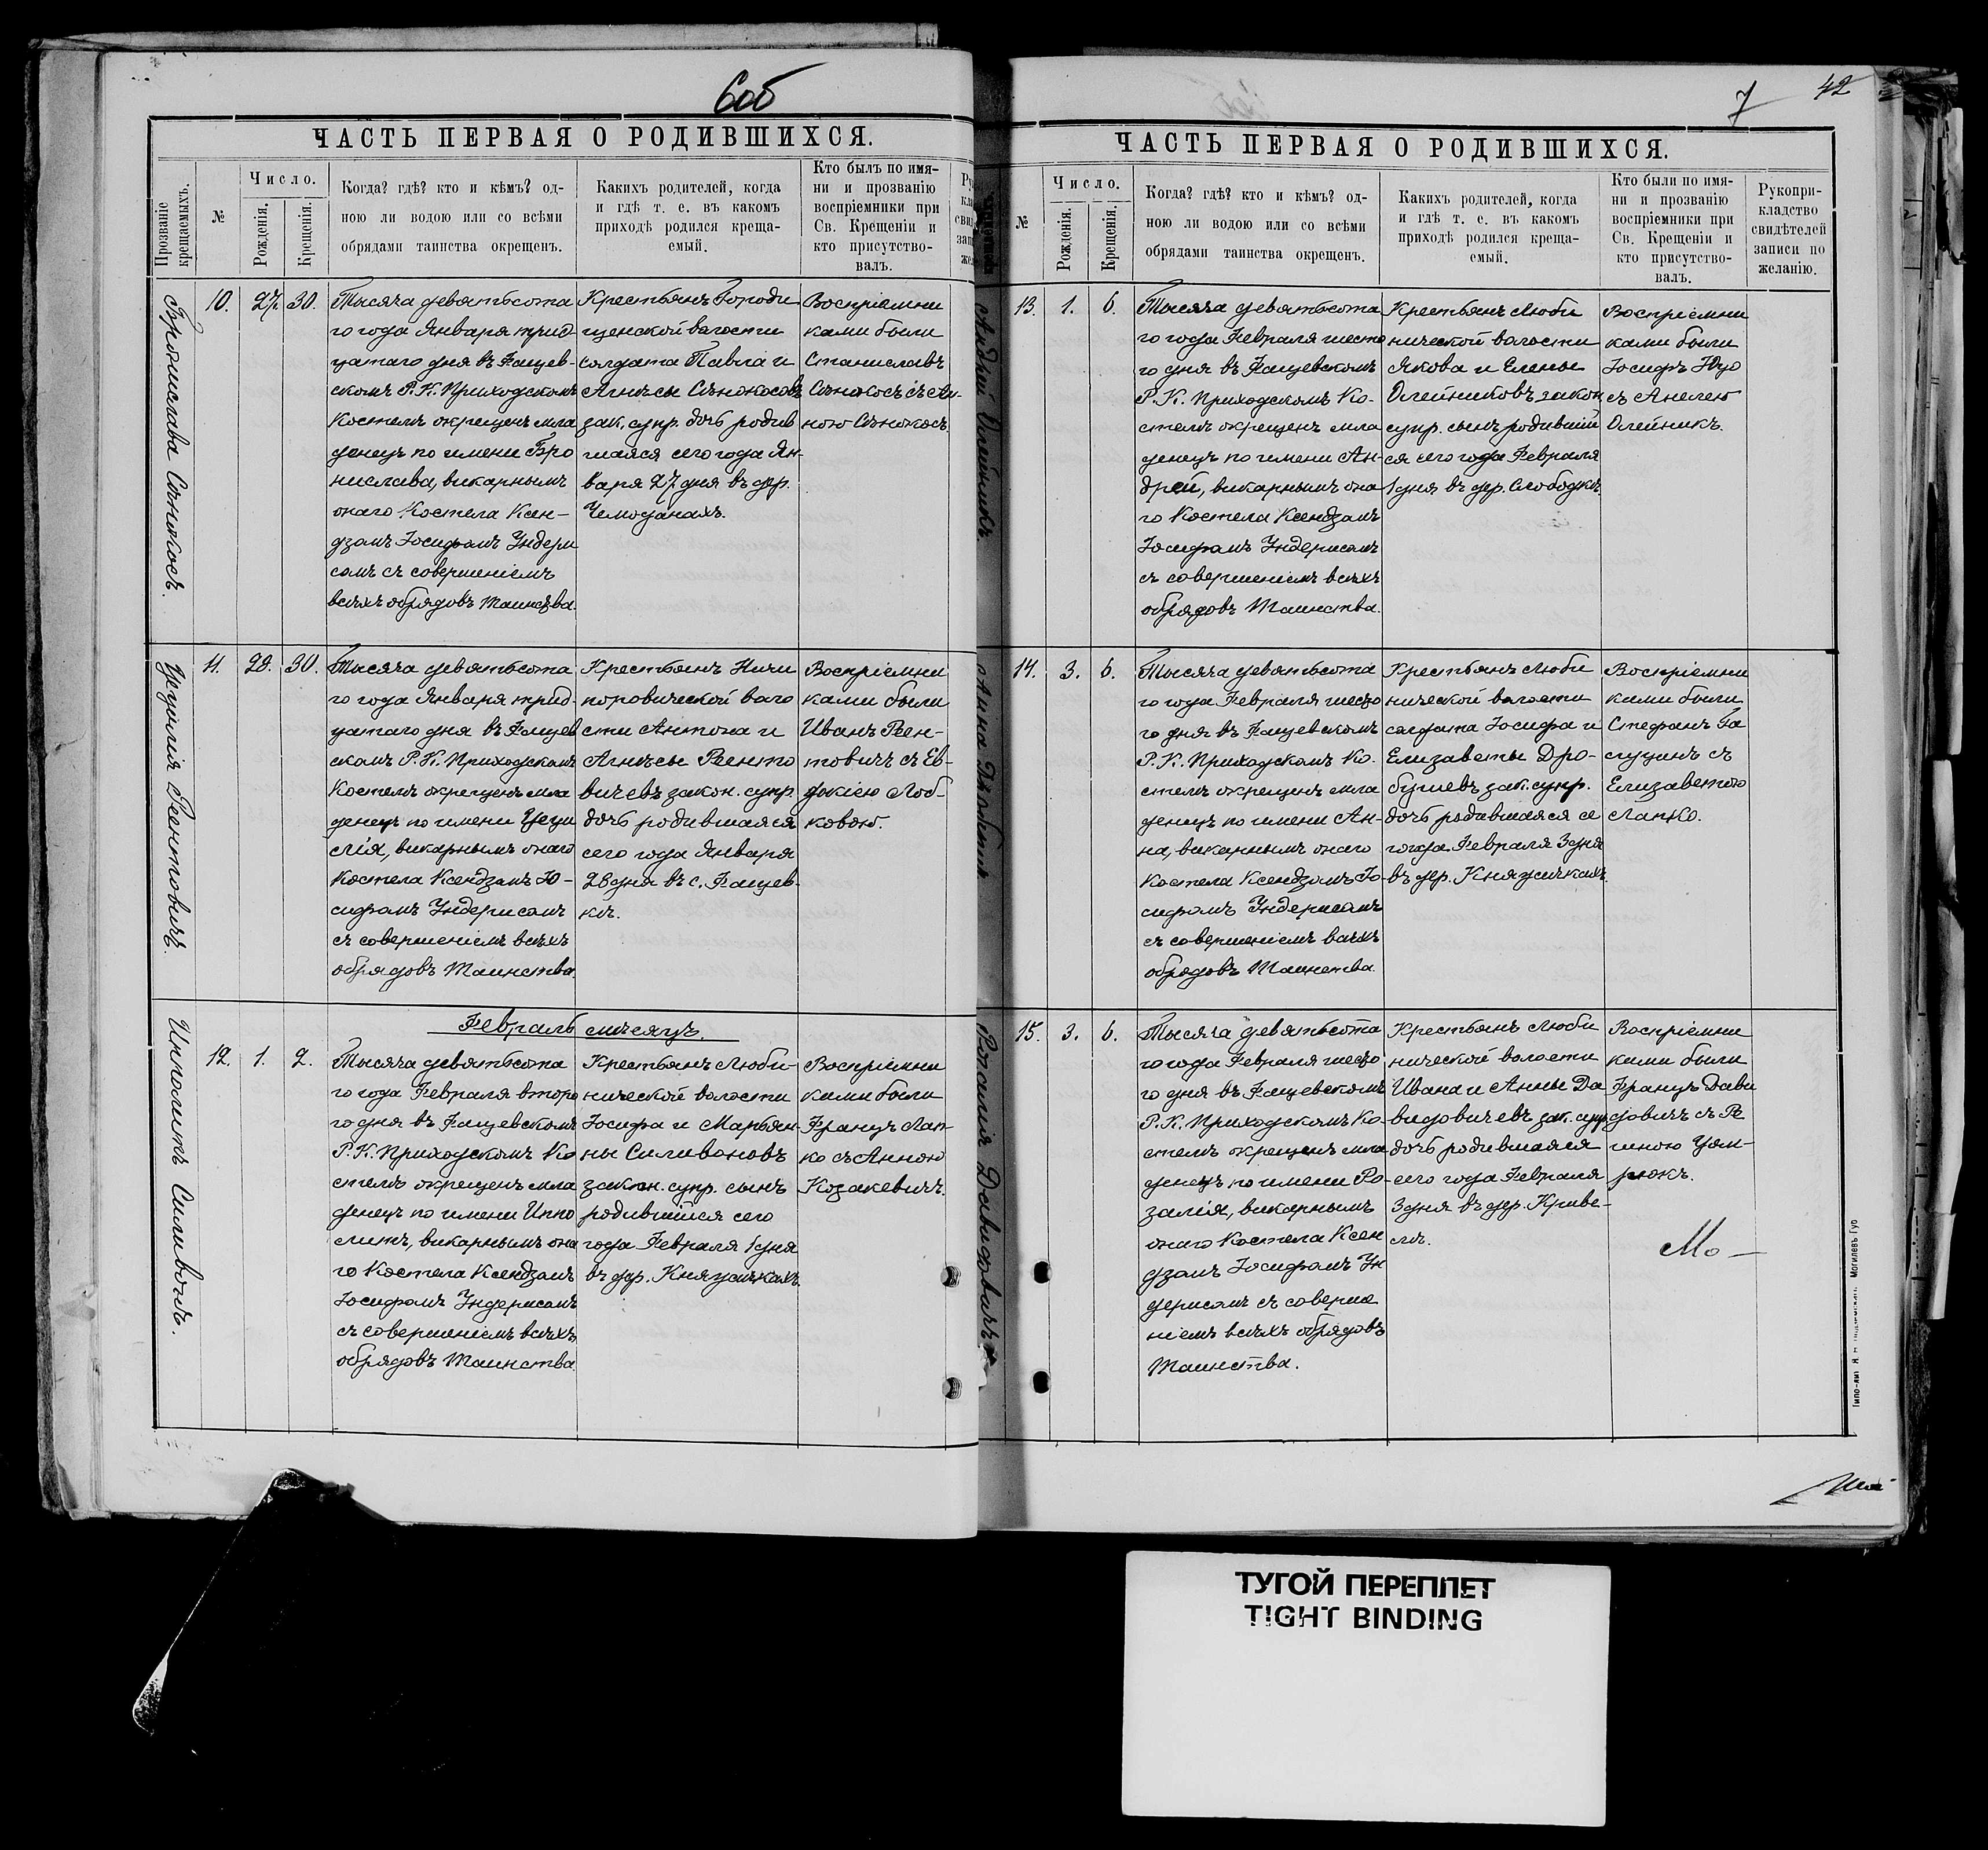 6об
ЧАСТЬ ПЕРВАЯ О РОДИВШИХСЯ.
Прозваніе
крещаемыхъ.
№
Число.
Рожденія.
Крещенія.
Когда? гдѣ? кто и кѣмъ? од-
ною ли водою или со всѣми
обрядами таинства окрещенъ.
Какихъ родителей, когда
и гдѣ т. е. въ какомъ
приходѣ родился креща-
емый.
Кто былъ по имя-
ни и прозванію
воспріемники при
Св. Крещеніи и
кто присутство-
валъ.
Бронислава Сѣнокосъ.
10.
27.
30.
Тысяча девятьсота
го года Января трид
цатаго дня въ Фащев-
скомъ Р.К. Приходскомъ
Костелѣ окрещенъ мла
денецъ по имени Бро
нислава, викарнымъ
онаго Костела Ксен-
дзомъ Іосифомъ Ундери
сомъ съ совершеніемъ
всѣхъ обрядовъ Таинства.
Крестьянъ Городи
щенской волости
солдата Павла и
Агнѣсы Сѣнокосовъ
зак. супр. дочь родив
шаяся сего года Ян-
варя 27 дня въ дер.
Чемоданахъ.
Воспріемни
ками были
Станиславъ
Сѣнокосъ съ Ан-
ною Сѣнокосъ.
Цецилія Рентовичъ.
11.
28.
30.
Тысяча девятьсота
го года Января трид-
цатаго дня въ Фащев
скомъ Р.К. Приходскомъ
Костелѣ окрещенъ мла
денецъ по имени Цеци
лія, викарнымъ онаго
Костела Ксендзомъ Іо-
сифомъ Ундерисомъ
съ совершеніемъ всѣхъ
обрядовъ Таинства
Крестьянъ Ничи
поровической воло
сти Антона и
Агнѣсы Ренто
вичевъ закон. супр.
дочь родившаяся
сего года Января
28 дня въ с. Фащев-
кѣ.
Воспріемни
ками были
Иванъ Рен-
товичъ съ Ев-
докіею Лоб-
ковою.
Февраль мѣсяцъ.
Ипполитъ Силивонъ.
12.
1.
2.
Тысяча девятьсота
го года Февраля второ
го дня въ Фащевскомъ
Р.К. Приходскомъ Ко
стелѣ окрещенъ мла
денецъ по имени Иппо
литъ, викарнымъ она
го Костела Ксендзомъ
Іосифомъ Ундерисомъ
съ совершеніемъ всѣхъ
обрядовъ Таинства
Крестьянъ Люби-
нической волости
Іосифа и Марьян-
ны Силивоновъ
закон. супр. сынъ
родившійся сего
года Февраля 1 дня
въ дер. Княжичахъ.
Воспріемни
ками были
Францъ Лап-
ко съ Анною
Козакевичъ.
7
42
ЧАСТЬ ПЕРВАЯ О РОДИВШИХСЯ.
№
Число.
Рожденія.
Крещенія.
Когда? гдѣ? кто и кѣмъ? од-
ною ли водою или со всѣми
обрядами таинства окрещенъ.
Какихъ родителей, когда
и гдѣ т. е. въ какомъ
приходѣ родился креща-
емый.
Кто были по имя-
ни и прозванію
воспріемники при
Св. Крещеніи и
кто присутство-
валъ.
Рукопри-
кладство
свидѣтелей
записи по
желанію.
Андрей Олейникъ
13.
1.
6.
Тысяча девятьсота
го года Февраля шесто
го дня въ Фащевскомъ
Р.К. Приходскомъ Ко-
стелѣ окрещенъ мла
денецъ по имени Ан-
дрей, викарнымъ она
го Костела Ксендзомъ
Іосифомъ Ундерисомъ
съ совершеніемъ всѣхъ
обрядовъ Таинства.
Крестьянъ Люби
нической волости
Якова и Елены
Олейниковъ закон
супр. сынъ родившій
ся сего года Февраля
1 дня въ дер. Слободкѣ.
Воспріемни
ками были
Іосифъ
съ Анелею
Олейникъ.
Анна
14.
3.
6.
Тысяча девятьсота
го года Февраля шесто
го дня въ Фащевскомъ
Р.К. Приходскомъ Ко-
стелѣ окрещенъ мла
денецъ по имени Ан-
на, викарнымъ онаго
Костела Ксендзомъ Іо-
сифомъ Ундерисомъ
съ совершеніемъ всѣхъ
обрядовъ Таинства.
Крестьянъ Люби
нической волости
солдата Іосифа и
Елизаветы Дро-
бушевъ зак. супр.
дочь родившаяся се
го года Февраля 3 дня
въ дер. Княжичахъ.
Воспріемни
ками были
Стефанъ
съ
Елизаветою
Лапко.
Розалія Давидовичъ
15.
3.
6.
Тысяча девятьсота
го года Февраля шесто
го дня въ Фащевскомъ
Р.К. Приходскомъ Ко-
стелѣ окрещенъ мла
денецъ по имени Ро-
залія, викарнымъ
онаго Костела Ксен
дзомъ Іосифомъ Ун
дерисомъ съ соверше
ніемъ всѣхъ обрядовъ
Таинства.
Крестьянъ Люби
нической волости
Ивана и Анны Да
видовичевъ зак. супр
дочь родившаяся
сего года Февраля
3 дня въ дер. Криве-
лѣ.
Воспріемни
ками были
Францъ Дави
довичъ съ Ре
гиною Цом-
рюкъ.
Мо —
Могилевъ Губ
ТУГОЙ ПЕРЕПЛЕТ
TIGHT BINDING